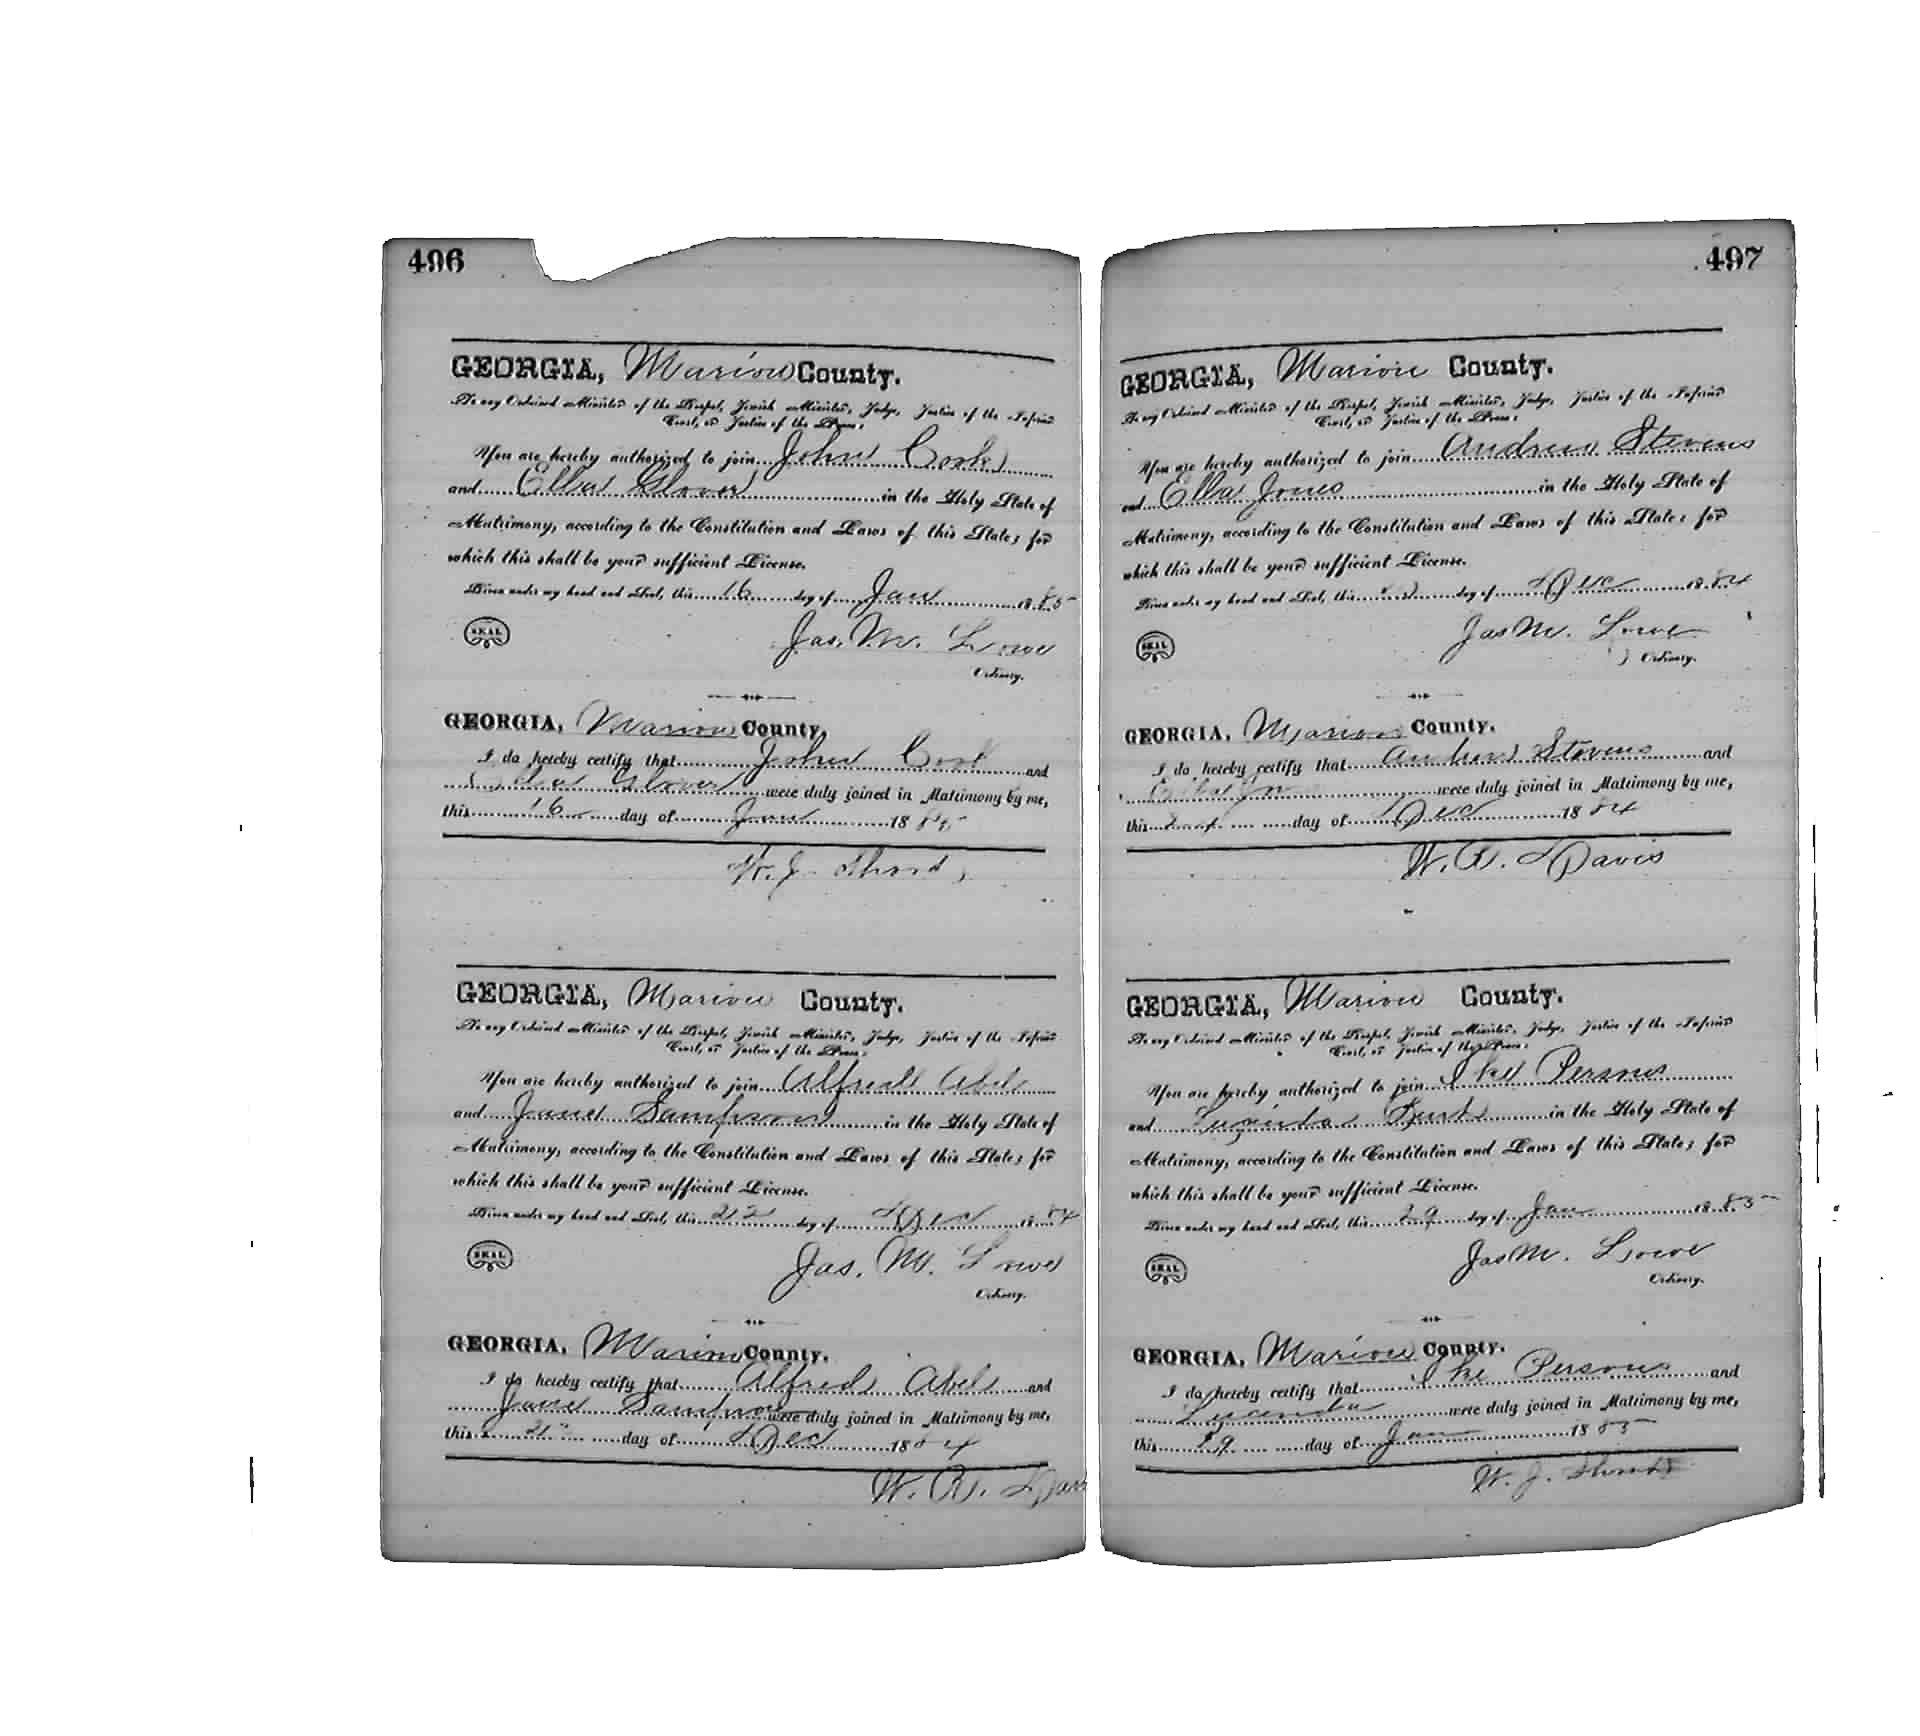 496
GEORGIA, Marion County.
To any Ordained Minister of the Gospel, Jewish Minister, Judge, Justice of the Inferior
Court, or Justice of the Peace:
You are hereby authorized to join John Cook
and Ella Glover in the Holy State of
Matrimony, according to the Constitution and Laws of this State; for
which this shall be your sufficient License.
Given under my hand and Seal, this 16 day of Jan 1885
SEAL
Jas. M. Lowe
Ordinary.
GEORGIA, Marion County,
I do hereby certify that John Cook and
Ella Glover were duly joined in Matrimony by me,
this 16 day of Jan 1885
W. J. Short
GEORGIA, Marion County.
To any Ordained Minister of the Gospel, Jewish Minister, Judge, Justice of the Inferior
Court, or Justice of the Peace:
You are hereby authorized to join Alfred Abel
and Jane Sampson in the Holy State of
Matrimony, according to the Constitution and Laws of this State; for
which this shall be your sufficient License.
Given under my hand and Seal, this 22 day of Dec 1884
SEAL
Jas. M. Lowe
Ordinary.
GEORGIA, Marion County.
I do hereby certify that Alfred Abel and
Jane Sampson were duly joined in Matrimony by me,
this day of Dec 1884
W. R. Davis
497
GEORGIA, Marion County.
To any Ordained Minister of the Gospel, Jewish Minister, Judge, Justice of the Inferior
Court, or Justice of the Peace:
You are hereby authorized to join Andrew Stevens
and Ella Jones in the Holy State of
Matrimony, according to the Constitution and Laws of this State; for
which this shall be your sufficient License.
Given under my hand and Seal, this day of Dec 1884
SEAL
Jas M. Lowe
Ordinary.
GEORGIA, Marion County.
I do hereby certify that Andrew Stevens and
Ella were duly joined in Matrimony by me,
this 24 day of Dec 1884
W. R. Davis
GEORGIA, Marion County.
To any Ordained Minister of the Gospel, Jewish Minister, Judge, Justice of the Inferior
Court, or Justice of the Peace:
You are hereby authorized to join Ike Persons
and in the Holy State of
Matrimony, according to the Constitution and Laws of this State; for
which this shall be your sufficient License.
Given under my hand and Seal, this 29 day of Jan 1885
SEAL
Jas M. Lowe
Ordinary.
GEORGIA, Marion County.
I do hereby certify that Ike Persons and
Lucinda were duly joined in Matrimony by me,
this 29 day of Jan 1885
W. J. Short